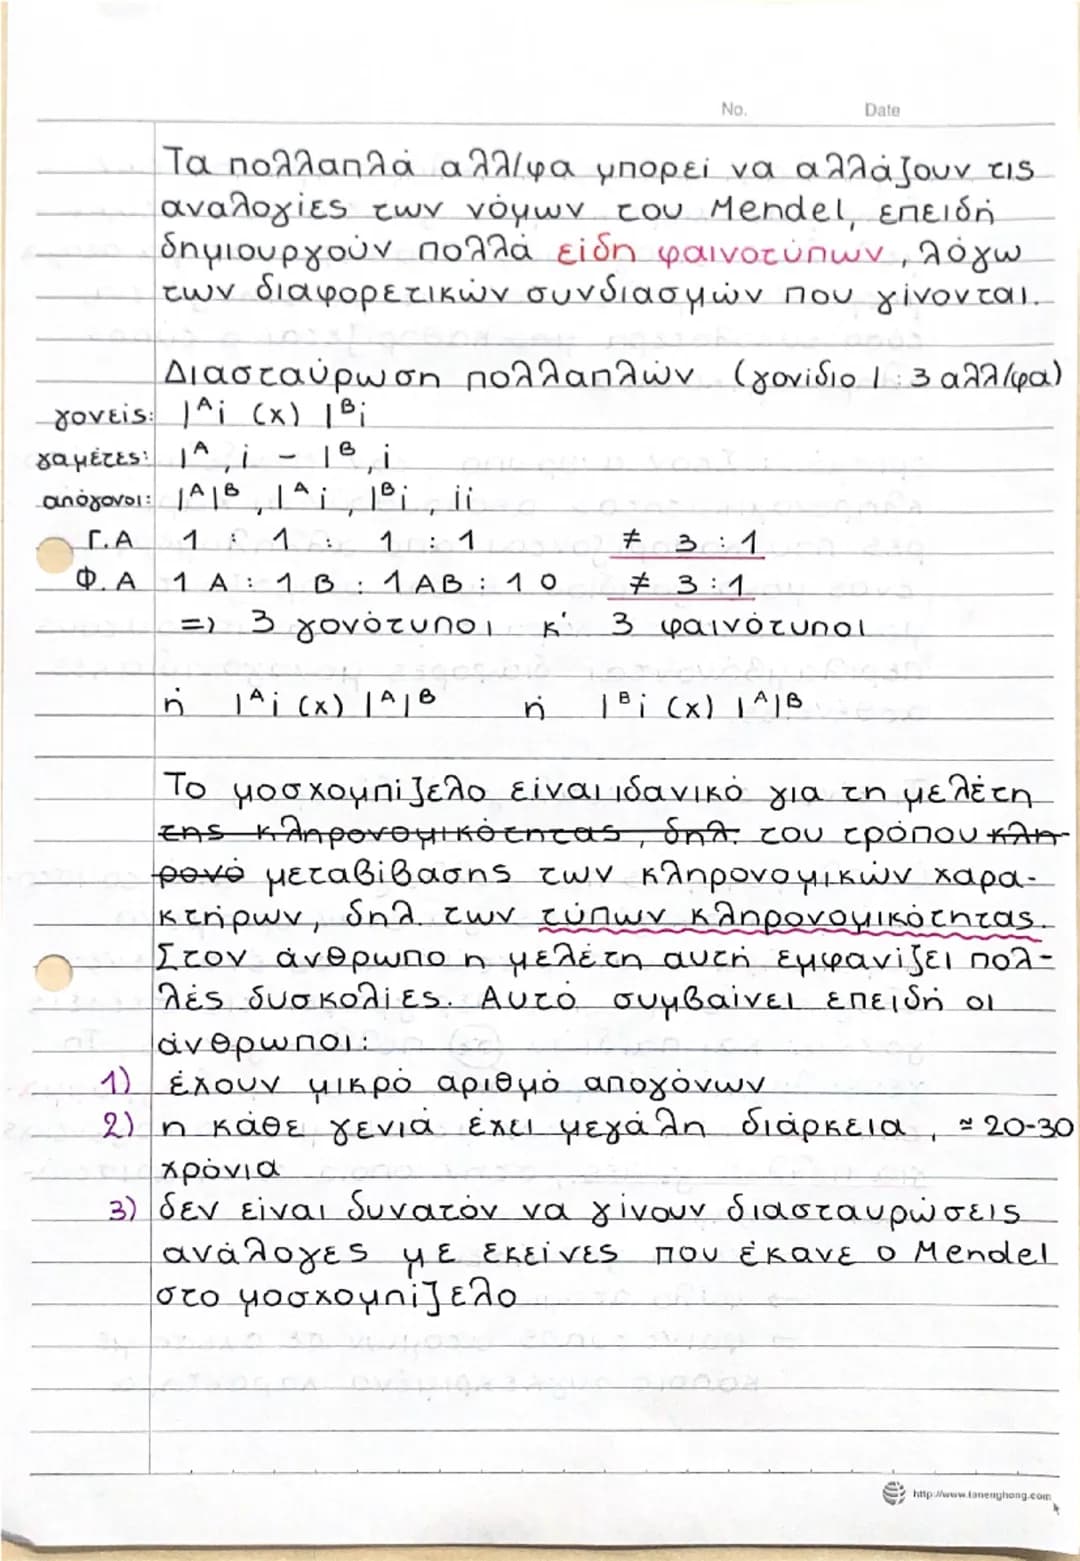 No. Date
Τα πολλαπλά αλλ/φα μπορεί να αλλάζουν τις
αναλογίες των νόμων του Mendel, επειδή
δημιουργούν πολλά είδη φαινοτύπων, λόγω
των διαφορετικών συνδιασμών που γίνονται.
Διασταύρωση πολλαπλών (γονίδιο Ι: 3 αλλ/φα)
γονείς: Iᴬi (x) Iᴮi
γαμέτες: Iᴬ, i - Iᴮ, i
απόγονοι: IᴬIᴮ, Iᴬi, Iᴮi, ii
Γ.Α 1 : 1 : 1 : 1 ≠ 3:1
Φ.Α 1 Α : 1 Β : 1 ΑΒ : 1 Ο ≠ 3:1
=> 3 γονότυποι κ' 3 φαινότυποι
ή Iᴬi (x) IᴬIᴮ ή Iᴮi (x) IᴬIᴮ
Το μοσχομπίζελο είναι ιδανικό για τη μελέτη
της κληρονομικότητας, δηλ. του τρόπου κλη-
ρονό μεταβίβασης των κληρονομικών χαρα-
κτήρων, δηλ. των τύπων κληρονομικότητας.
Στον άνθρωπο η μελέτη αυτή εμφανίζει πολ-
λές δυσκολίες. Αυτό συμβαίνει επειδή οι
άνθρωποι:
1) έχουν μικρό αριθμό απογόνων
2) η κάθε γενιά έχει μεγάλη διάρκεια, ≃ 20-30
χρόνια
3) δεν είναι δυνατόν να γίνουν διασταυρώσεις
ανάλογες με εκείνες που έκανε ο Mendel
στο μοσχομπίζελο
http://www.tanenghong.com